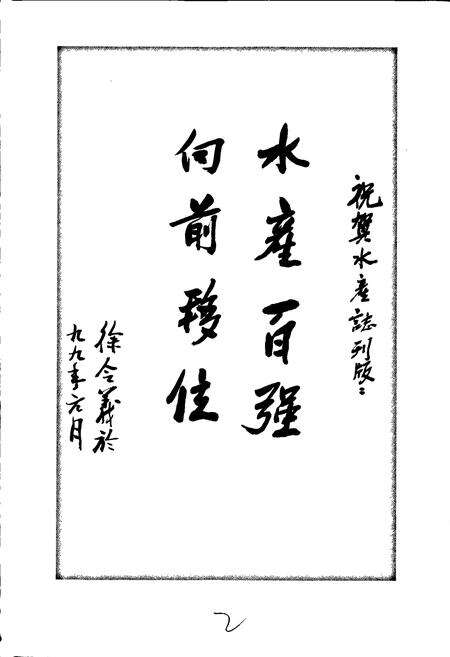 祝贺水産誌刊版:
水産百强
向前移位
徐令義於
九九年六月
2